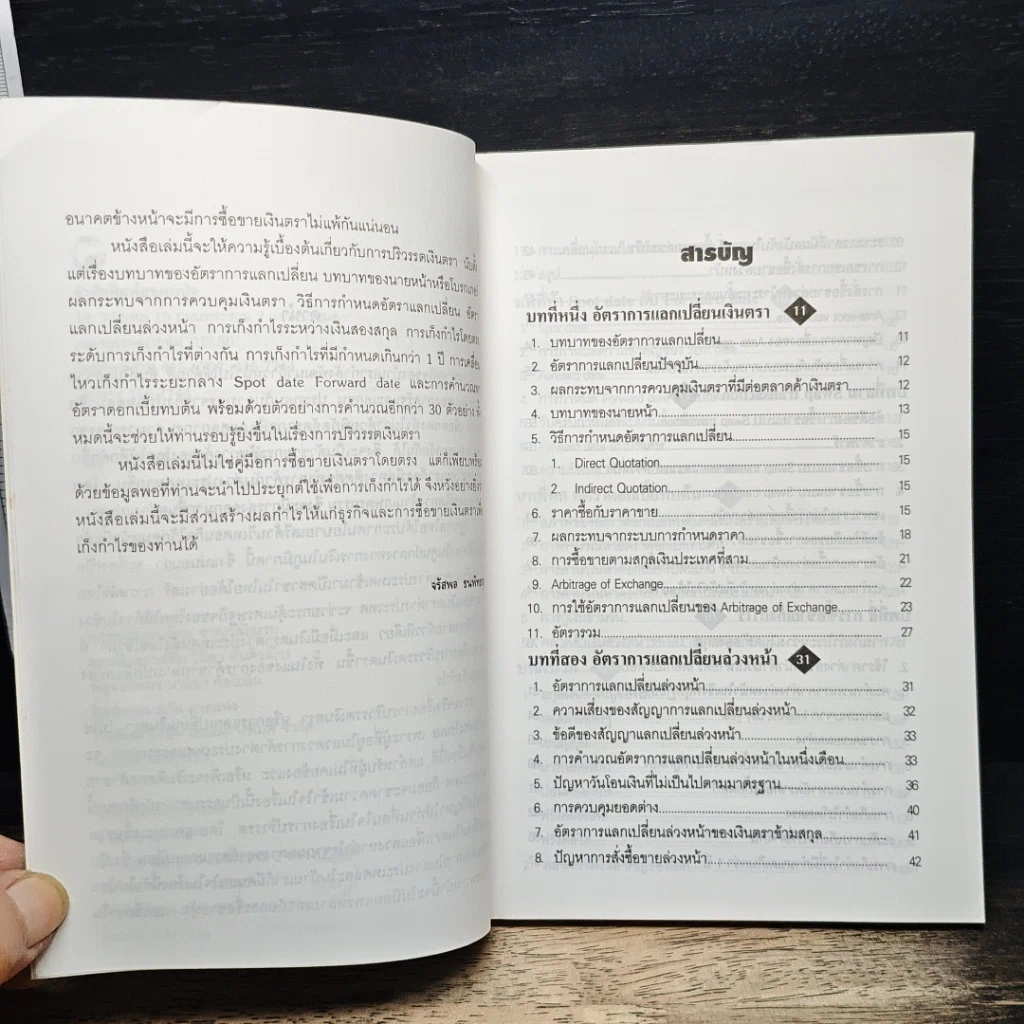 อนาคตข้างหน้าจะมีการซื้อขายเงินตราไม่แพ้กันแน่นอน
หนังสือเล่มนี้จะให้ความรู้เบื้องต้นเกี่ยวกับการปริวรรตเงินตรา นับตั้ง
แต่เรื่องบทบาทของอัตราการแลกเปลี่ยน บทบาทของนายหน้าหรือโบรกเกอร์
ผลกระทบจากการควบคุมเงินตรา วิธีการกำหนดอัตราแลกเปลี่ยน อัตรา
แลกเปลี่ยนล่วงหน้า การเก็งกำไรระหว่างเงินสองสกุล การเก็งกำไรโดย
ระดับการเก็งกำไรที่ต่างกัน การเก็งกำไรที่มีกำหนดเกินกว่า 1 ปี การเคลื่อน
ไหวเก็งกำไรระยะกลาง Spot date Forward date และการคำนวณ
อัตราดอกเบี้ยทบต้น พร้อมด้วยตัวอย่างการคำนวณอีกกว่า 30 ตัวอย่าง
หมดนี้จะช่วยให้ท่านรอบรู้ยิ่งขึ้นในเรื่องการปริวรรตเงินตรา
หนังสือเล่มนี้ไม่ใช่คู่มือการซื้อขายเงินตราโดยตรง แต่ก็เพียบพร้อม
ด้วยข้อมูลพอที่ท่านจะนำไปประยุกต์ใช้เพื่อการเก็งกำไรได้ จึงหวังอย่างยิ่ง
หนังสือเล่มนี้จะมีส่วนสร้างผลกำไรให้แก่ธุรกิจและการซื้อขายเงินตราเพื่อ
เก็งกำไรของท่านได้
จรัสพล
สารบัญ
บทที่หนึ่ง อัตราการแลกเปลี่ยนเงินตรา 11
1. บทบาทของอัตราการแลกเปลี่ยน 11
2. อัตราการแลกเปลี่ยนปัจจุบัน 12
3. ผลกระทบจากการควบคุมเงินตราที่มีต่อตลาดค้าเงินตรา 12
4. บทบาทของนายหน้า 13
5. วิธีการกำหนดอัตราการแลกเปลี่ยน 15
1. Direct Quotation 15
2. Indirect Quotation 15
6. ราคาซื้อกับราคาขาย 15
7. ผลกระทบจากระบบการกำหนดราคา 18
8. การซื้อขายตามสกุลเงินประเทศที่สาม 21
9. Arbitrage of Exchange 22
10. การใช้อัตราการแลกเปลี่ยนของ Arbitrage of Exchange 23
11. อัตรารวม 27
บทที่สอง อัตราการแลกเปลี่ยนล่วงหน้า 31
1. อัตราการแลกเปลี่ยนล่วงหน้า 31
2. ความเสี่ยงของสัญญาการแลกเปลี่ยนล่วงหน้า 32
3. ข้อดีของสัญญาแลกเปลี่ยนล่วงหน้า 33
4. การคำนวณอัตราการแลกเปลี่ยนล่วงหน้าในหนึ่งเดือน 33
5. ปัญหาวันโอนเงินที่ไม่เป็นไปตามมาตรฐาน 36
6. การควบคุมยอดต่าง 40
7. อัตราการแลกเปลี่ยนล่วงหน้าของเงินตราข้ามสกุล 41
8. ปัญหาการสั่งซื้อขายล่วงหน้า 42